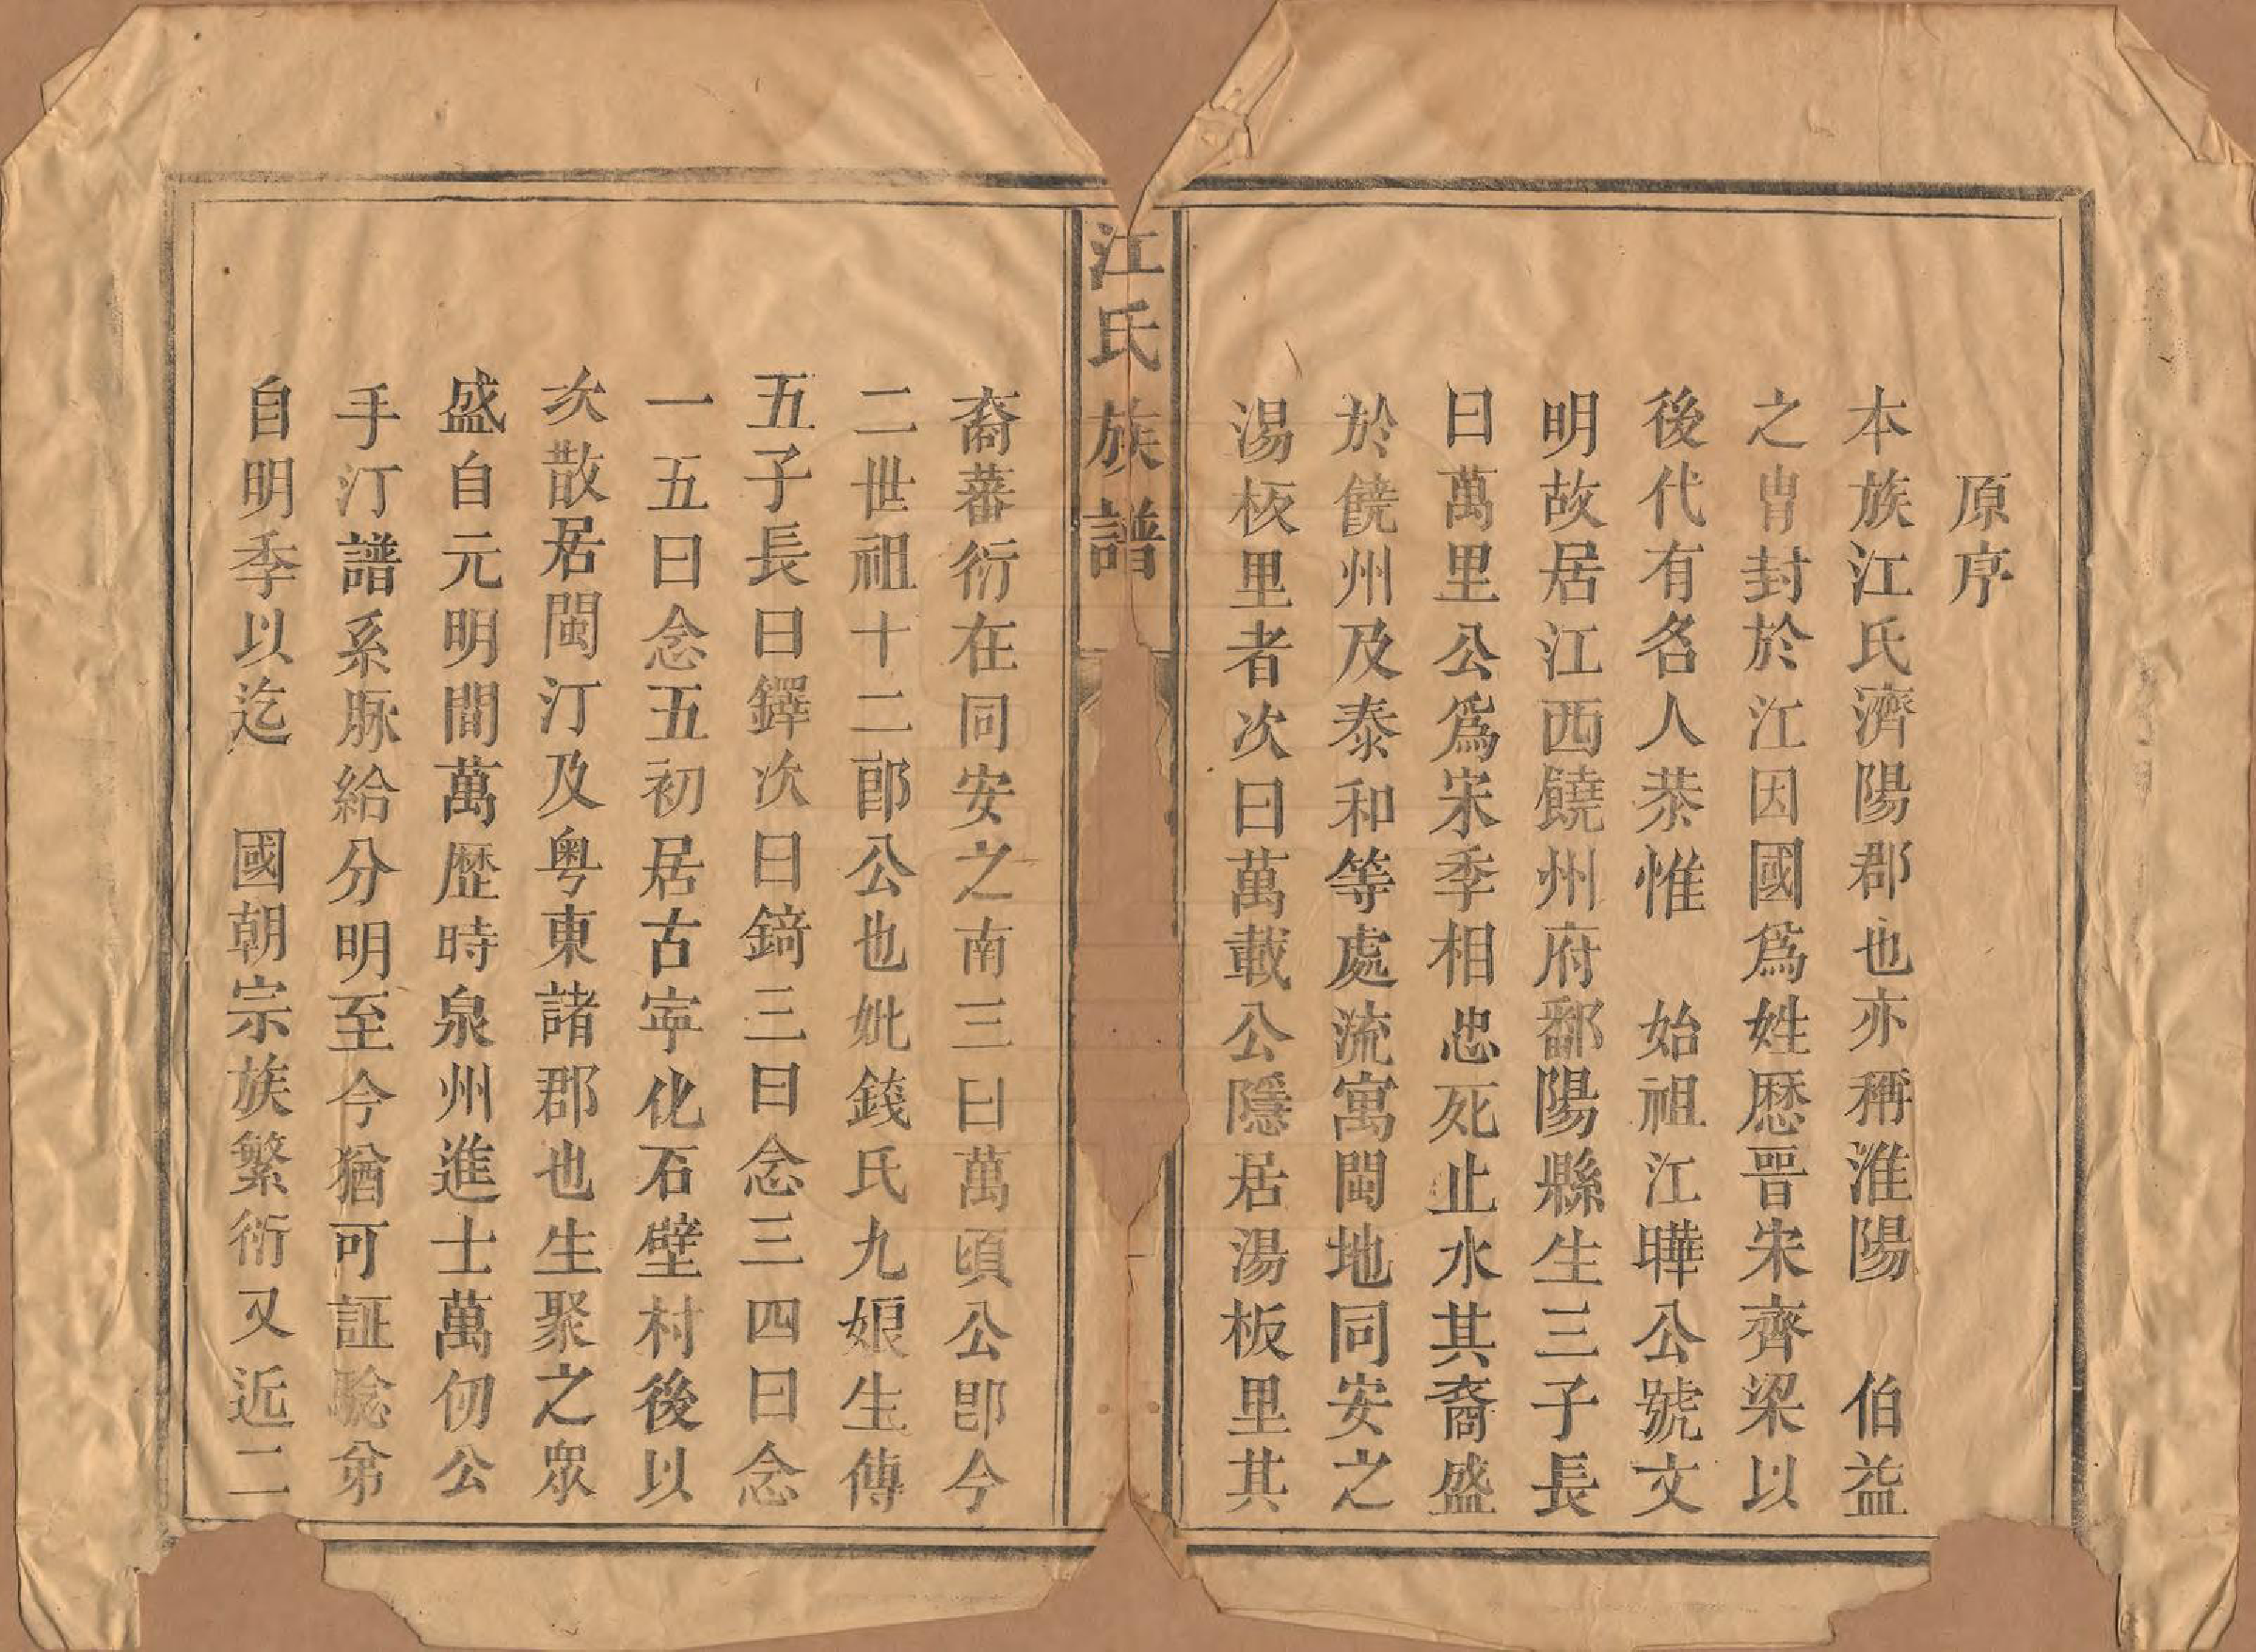 原序
本族江氏濟陽郡也亦稱淮陽　伯益
之胄封於江因國爲姓歷晉宋齊梁以
後代有名人恭惟　始祖江曄公號文
明故居江西饒州府鄱陽縣生三子長
曰萬里公爲宋季相忠死止水其裔盛
於饒州及泰和等處流寓閩地同安之
湯板里者次曰萬載公隱居湯板里其
江氏族譜
裔蕃衍在同安之南三曰萬頃公即今
二世祖十二郎公也妣錢氏九娘生傳
五子長曰鐸次曰錡三曰念三四曰念
一五曰念五初居古寧化石壁村後以
次散居閩汀及粵東諸郡也生聚之衆
盛自元明間萬歷時泉州進士萬仞公
手汀譜系脉給分明至今猶可証騐弟
自明季以迄　國朝宗族繁衍又近二